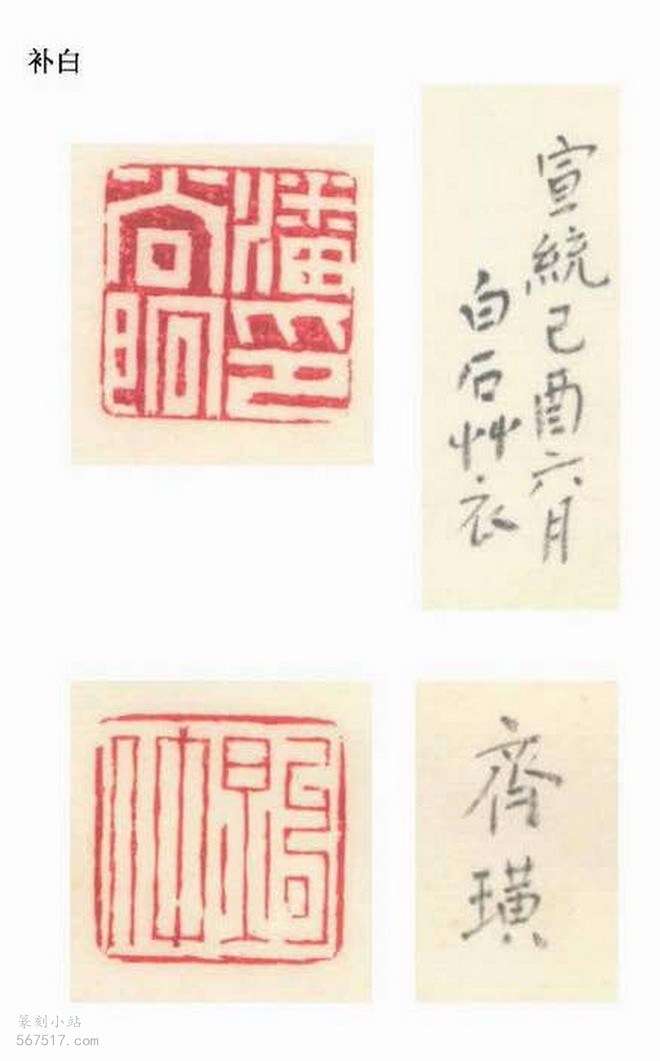 补白
潘印
尚
宣統己酉六月
白石艸衣
齊璜
篆刻小站
567517.com